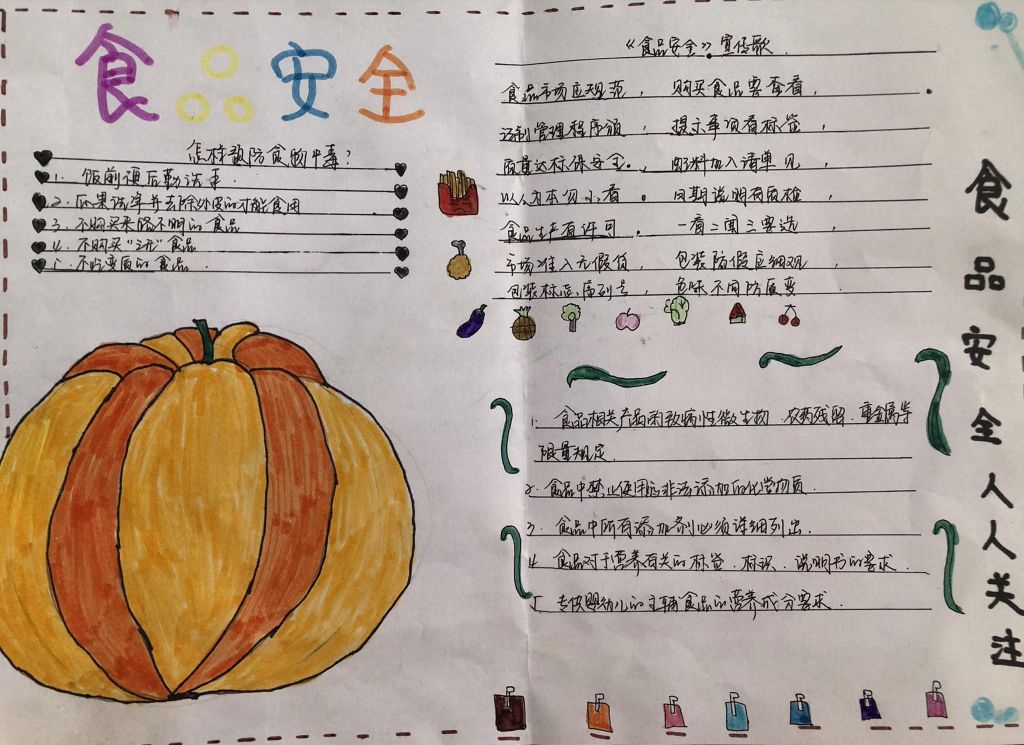 食品安全
怎样预防食物中毒？
1. 饭前便后勤洗手.
2. 瓜果洗净并去除外皮的才能食用
3. 不购买来路不明的食品
4. 不购买“三无”食品
5. 不吃变质的食品.
《食品安全》宣传歌.
食品市场应规范， 购买食品要查看，
法制管理程序颁， 提示事项看标签，
质量达标保安全.， 配料加入清单见，
以人为本勿小看。 日期说明有质检，
食品生产有许可。 一看二闻三要选，
市场准入无假货， 包装防假应细观，
包装标志.序列号， 色味不同防质变
1. 食品相关产品内致病性微生物.农药残留.重金属等
限量规定.
2. 食品中禁止使用的非法添加的化学物质.
3. 食品中所有添加剂必须详细列出.
4 食品对于营养有关的标签.标识.说明书的要求.
5 专供婴幼儿的主辅食品的营养成分要求.
食品安全人人关注